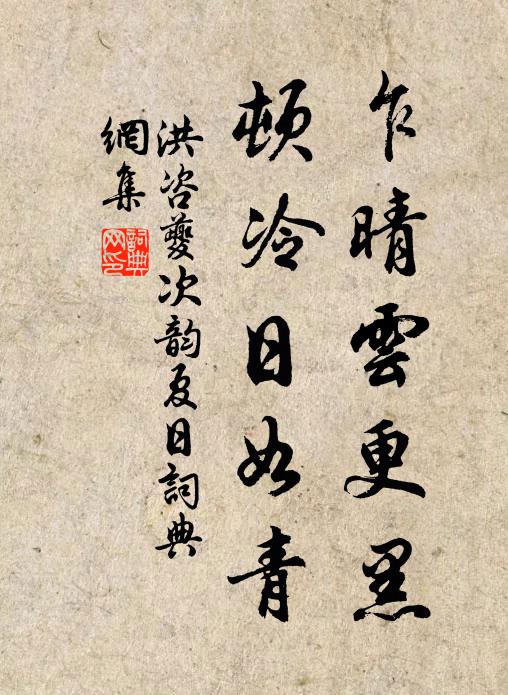 乍晴雲更黑
頓冷日如青
洪咨夔次韵夏日詞典
網集
詞典
网印